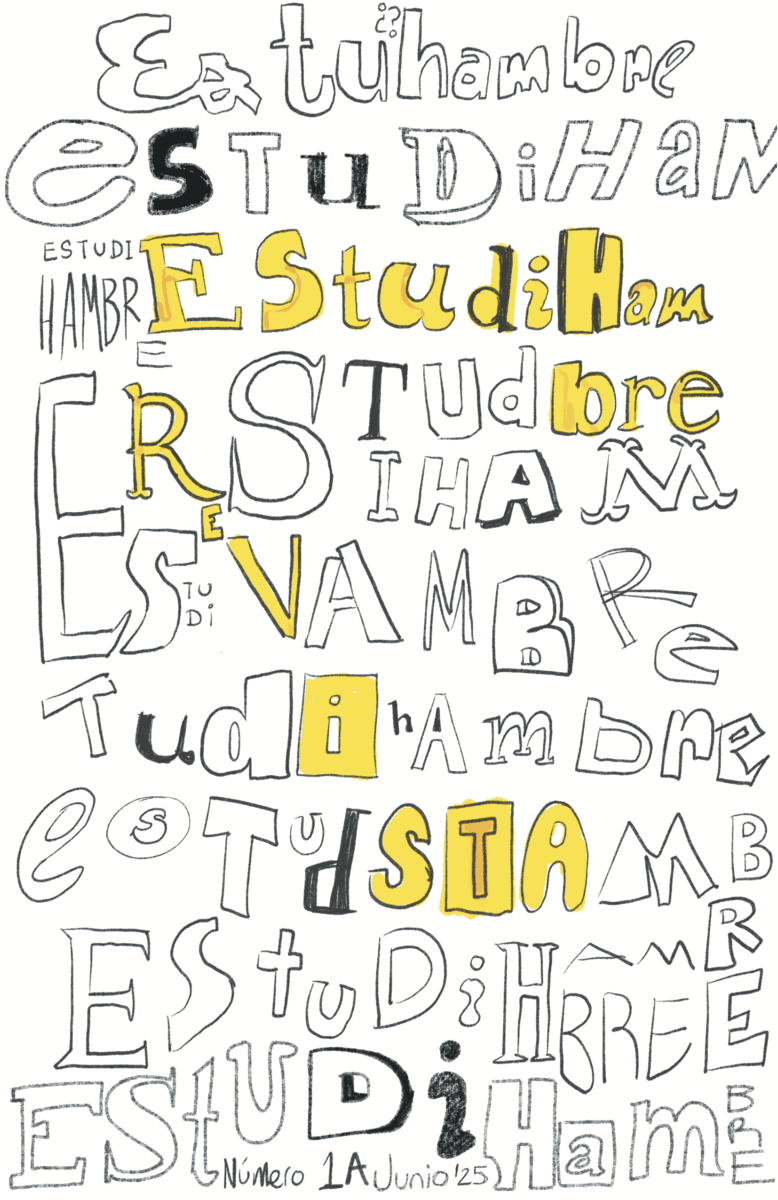 Es tu¿?hambre
eSTuDiHaM
ESTUDI
HAMBR
E
EStudiHam
ERSTUdbre
IHAM
E
ESTUDIVAMBRe
TudihAmbre
esTudSTAMB
R
EStuDiHAM
BRE E
EStUDiHamBRE
Número 1A Junio '25